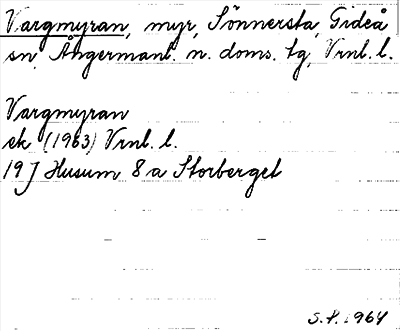 Vargmyran, myr, Sönnersta, Gideå
sn, Ångermanl. n. doms. tg, Vrnl. l.
Vargmyran
ek (1963) Vrnl. l.
19 J Husum 8 a Storberget
S.P. 1964